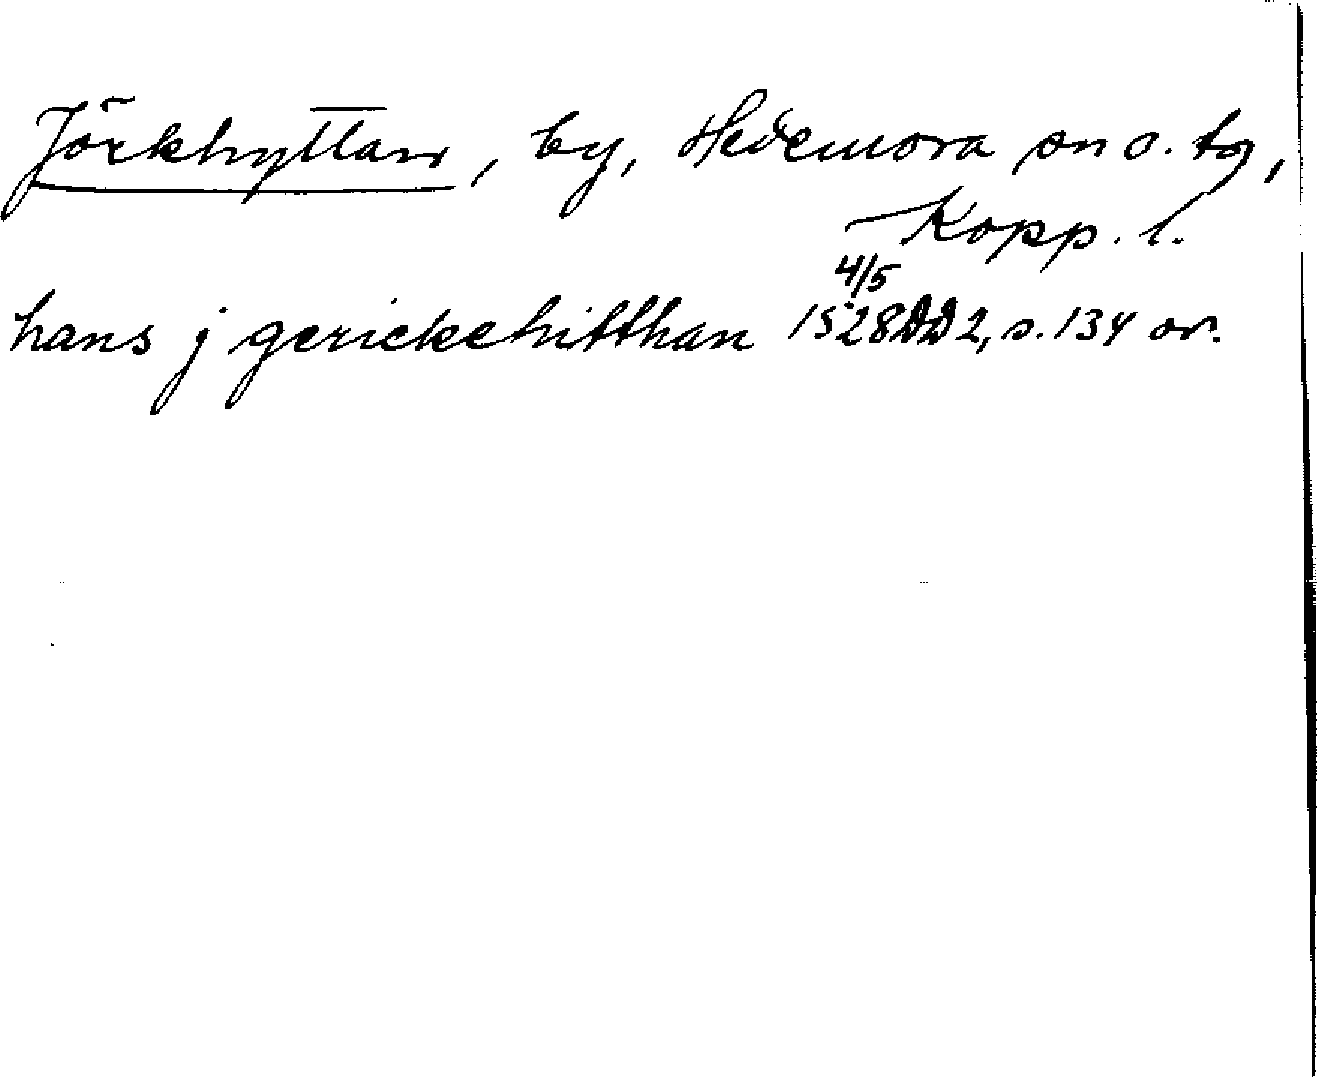 Jörkhyttan, by, Hedemora sn o. tg,
Kopp. l.
4/5
hans j gerickehitthan 1528 DD 2, s. 134 or.